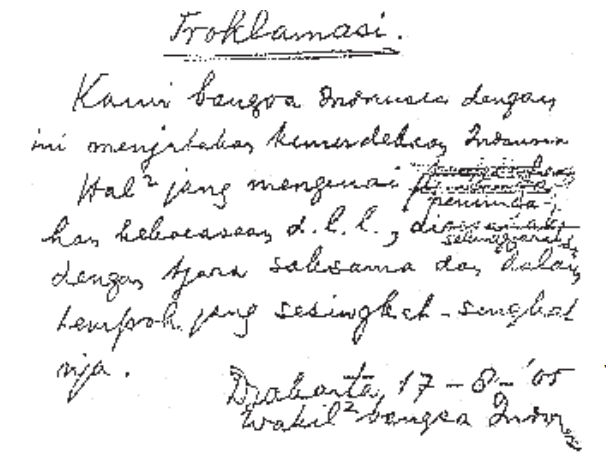 Proklamasi.
Kami bangsa Indonesia dengan
ini menjatakan kemerdekaan Indonesia
Hal² jang mengenai pemindah-
kan kekoeasaan, d.l.l., diselenggarakan
dengan tjara saksama dan dalam
tempoh jang sesingkat-singkat
nja.
Djakarta, 17-8-'05
Wakil² bangsa Indonesia